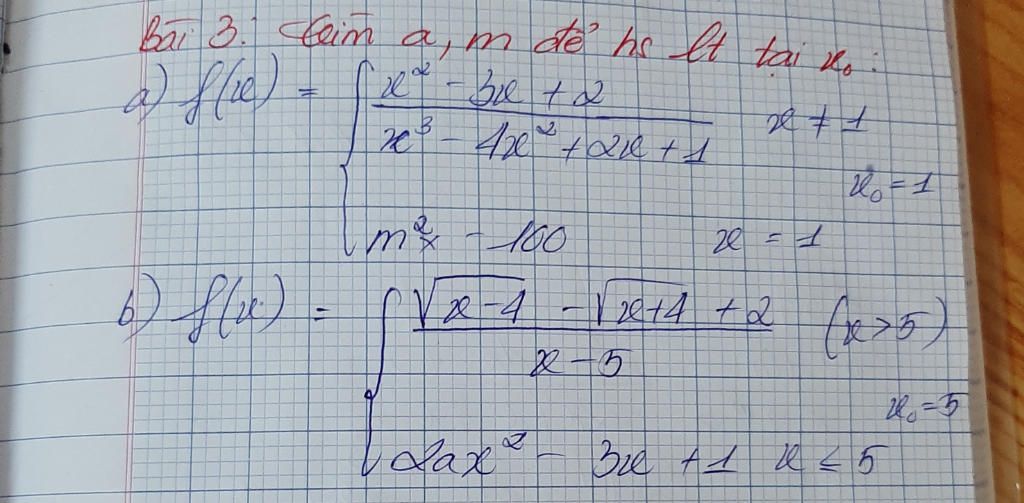 Bài 3: Tìm a, m để hs lt tại x₀:
a) f(x) = { (x² - 3x + 2)/(x³ - 4x² + 2x + 1) x ≠ 1
x₀ = 1
m²x - 100 x = 1
b) f(x) = { (√(x-4) - √(x+4) + 2)/(x - 5) (x > 5)
x₀ = 5
2ax² - 3x + 1 x ≤ 5